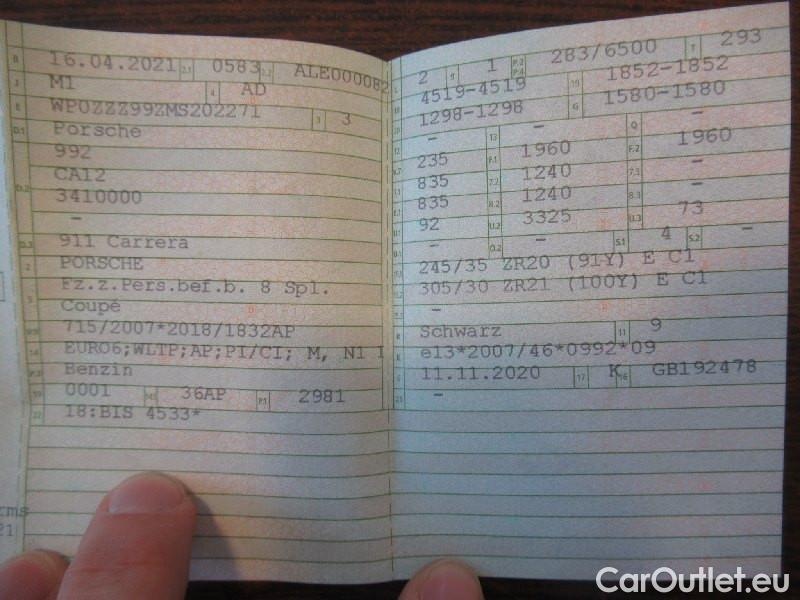 B 16.04.2021 2.1 0583 2.2 ALE000082
J M1 4 AD
E WP0ZZZ99ZMS202271 3 3
D.1 Porsche
992
D.2 CA12
3410000
-
D.3 911 Carrera
2 PORSCHE
5 Fz.z.Pers.bef.b. 8 Spl.
Coupé
V.9 715/2007*2018/1832AP
14 EURO6;WLTP;AP;PI/CI; M, N1 I
P.3 Benzin
10 0001 14.1 36AP P.1 2981
22 18:BIS 4533*
L 2 9 1 P.2 P.4 283/6500 T 293
18 4519-4519 19 1852-1852
20 1298-1298 G 1580-1580
12 - 13 - Q -
V.7 235 F.1 1960 F.2 1960
7.1 835 7.2 1240 7.3 -
8.1 835 8.2 1240 8.3 -
U.1 92 U.2 3325 U.3 73
O.1 - O.2 - S.1 4 S.2 -
15.1 245/35 ZR20 (91Y) E C1
15.2 305/30 ZR21 (100Y) E C1
-
R Schwarz 11 9
K e13*2007/46*0992*09
6 11.11.2020 17 K 16 GB192478
21 -
rms
21
CarOutlet.eu